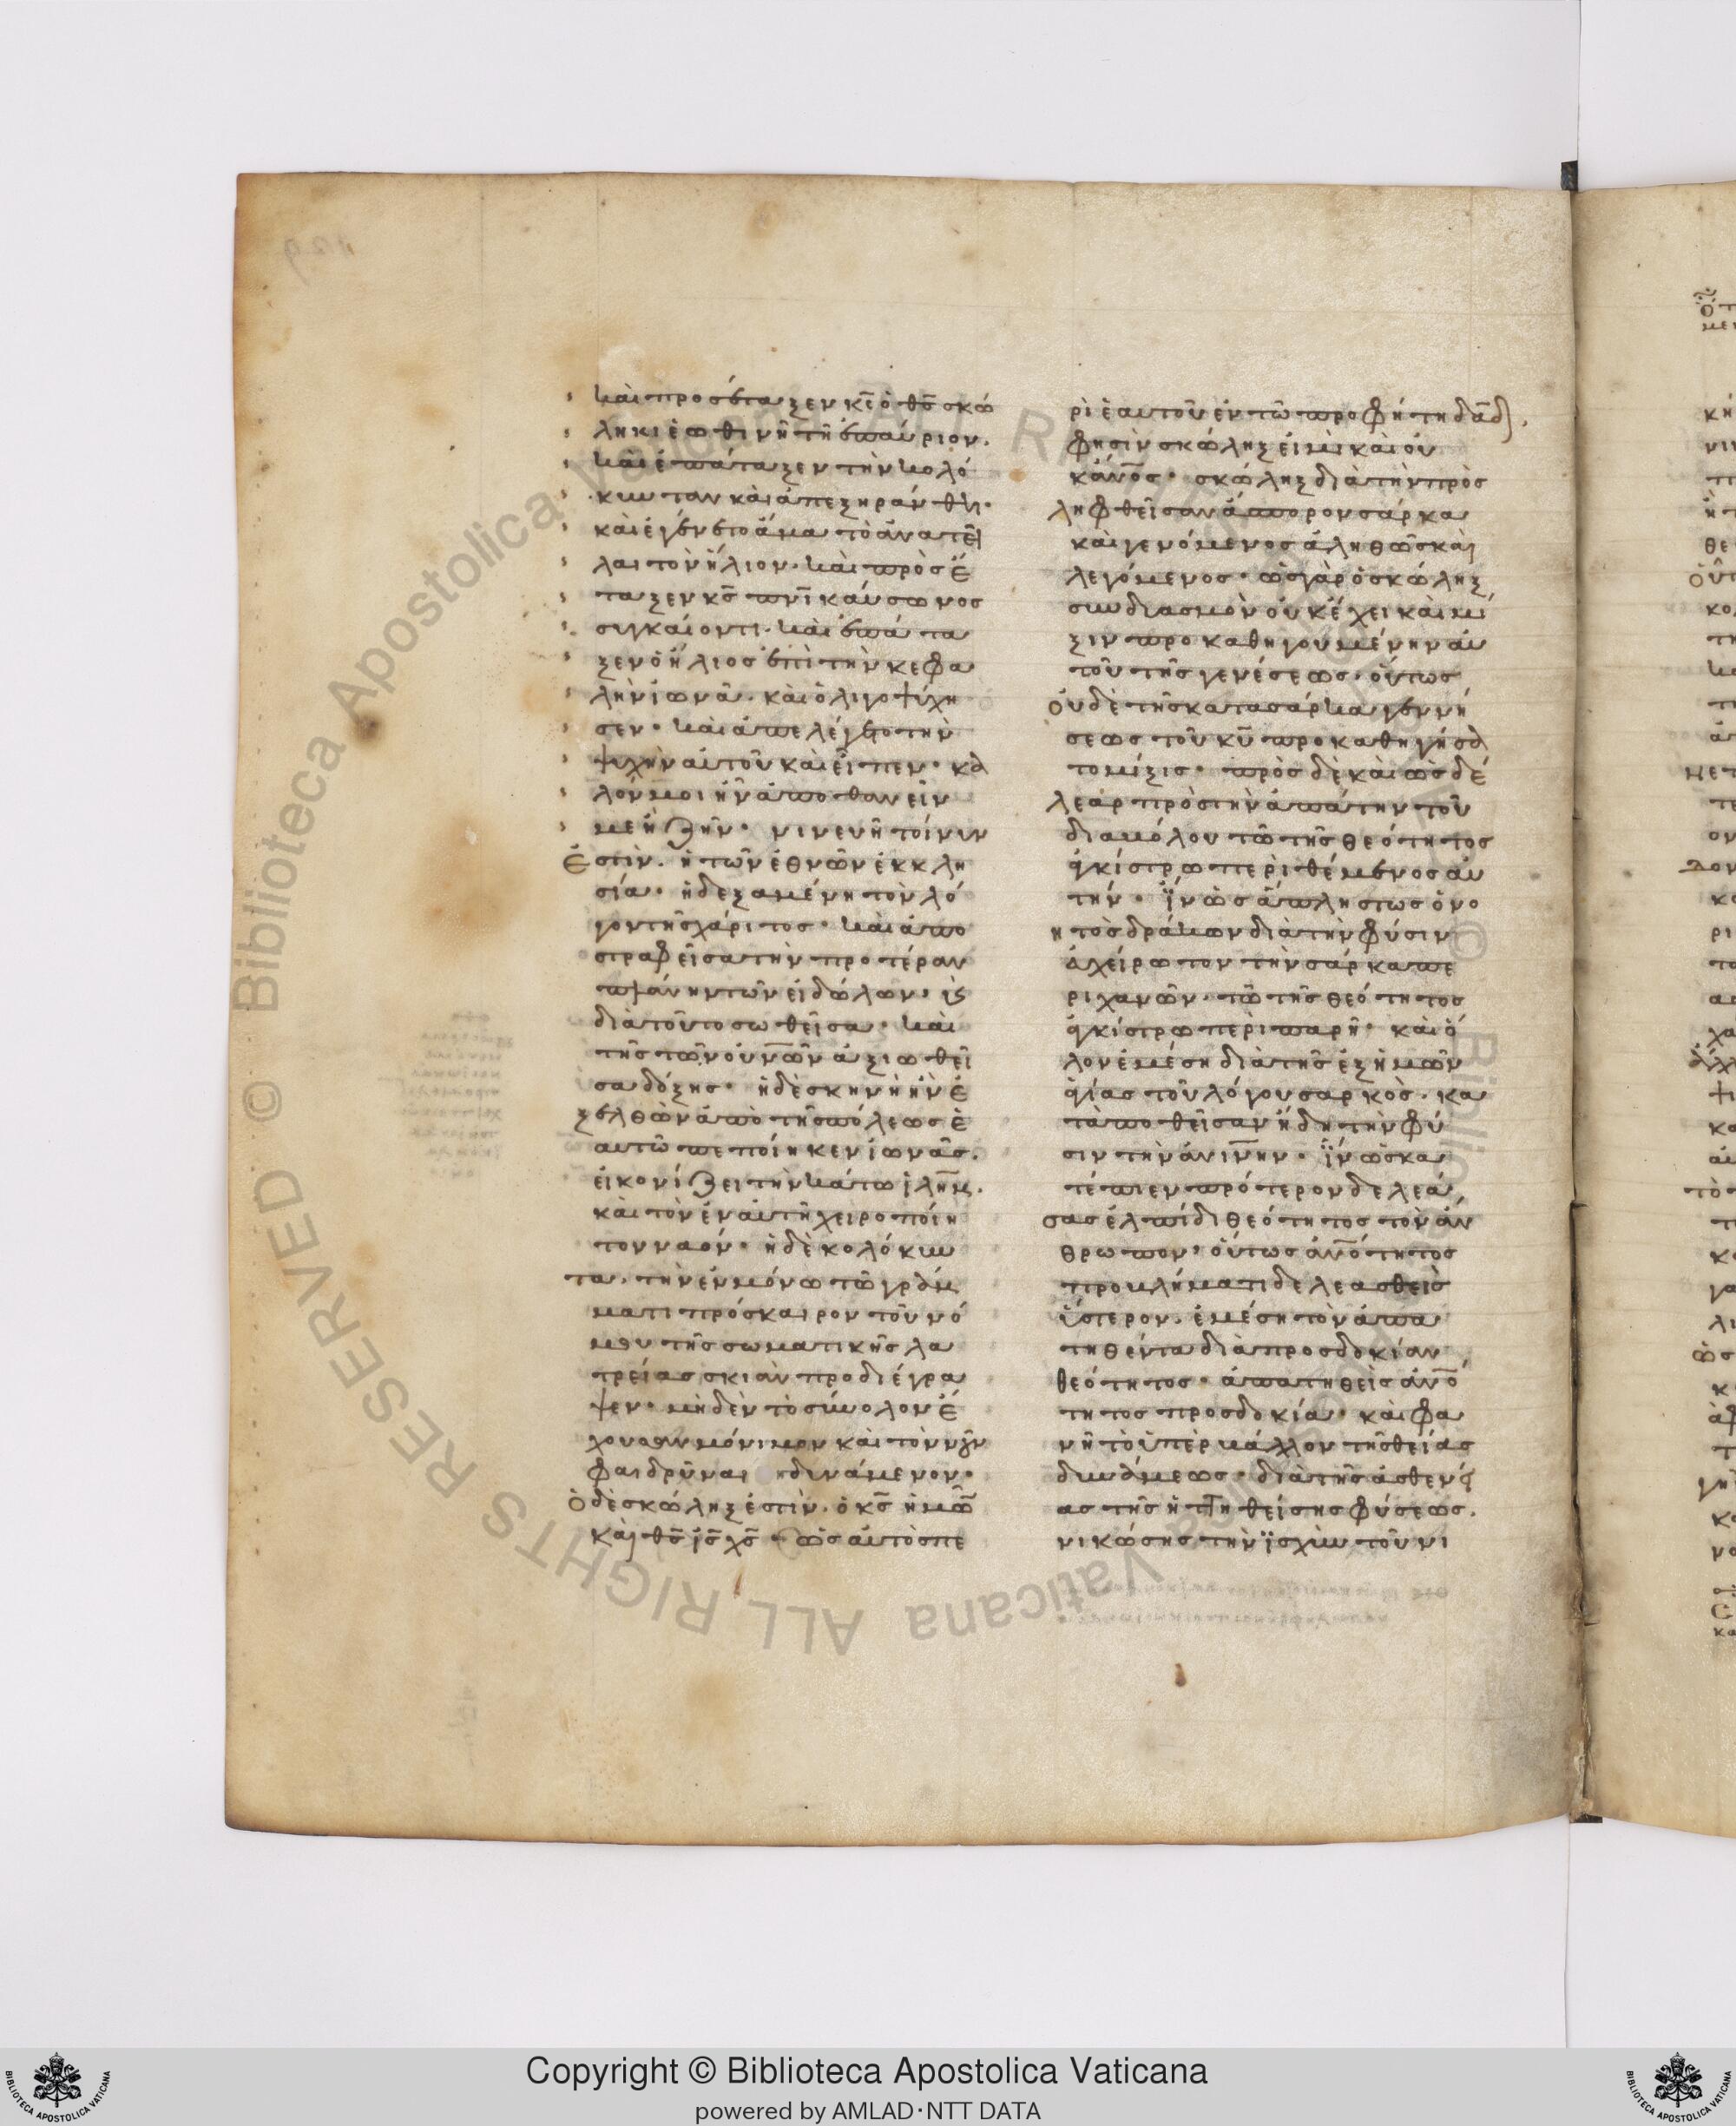 καὶ προσέταξεν κ̅ς̅ ὁ θ̅ς̅ σκώ
ληκι ἑωθινῆ τῆ ἐπαύριον.
καὶ ἐπάταξεν τὴν κολό
κυνταν καὶ ἀπεξηράνθη·
καὶ ἐγένετο ἅμα τὸ ἀνατεῖ
λαι τὸν ἥλιον· καὶ προσέ
ταξεν κ̅ς̅ πν̅ι̅ καύσωνος
συγκαίοντι· καὶ ἐπάτα
ξεν ὁ ἥλιος ἐπὶ τὴν κεφα
λὴν ἰωνᾶ· καὶ ὀλιγοψύχη
σεν· καὶ ἀπελέγετο τὴν
ψυχὴν αὐτοῦ καὶ εἶπεν· κα
λόν μοι ἦν ἀποθανεῖν
με ἢ ζῆν· νινευῆ τοίνυν
ἐστὶν· ἡ τῶν ἐθνῶν ἐκκλη
σία· ἡ δεξαμένη τὸν λό
γον τῆς χάριτος· καὶ ἀπο
στραφεῖσα τὴν προτέραν
πλάνην τῶν εἰδώλων· κ̣
διὰ τοῦτο σωθεῖσα· καὶ
τῆς τῶν οὐν̅ῶν ἀξιωθεῖ
σα δόξης· ἡ δὲ σκηνὴ ἣν ἐ
ξελθὼν ἀπὸ τῆς πόλεως ἑ
αυτῶ πεποίηκεν ἰωνᾶς·
εἰκονίζει τὴν κάτω ἰλη̅μ·
καὶ τὸν ἐν αὐτῆ χειροποίη
τον ναόν· ἡ δὲ κολόκυν
τα· τὴν ἐν μόνω τῶ γράμ
ματι πρόσκαιρον τοῦ νό
μου τῆς σωματικῆς λα
τρείας σκιὰν προδιέγρα
ψεν· μηδὲν τὸ σύνολον ἔ
χουσαν μόνιμον καὶ τὸν νοῦν
φαιδρῦναι δυνάμενον·
ὁ δὲ σκώληξ ἐστὶν· ὁ κ̅ς̅ ἡμῶν
καὶ θ̅ς̅ ι̅ς̅ χ̅ς̅· ὡς αὐτὸς πε
ρὶ ἑαυτοῦ ἐν τῶ προφήτη δα̅δ.
φησὶν σκώληξ εἰμὶ καὶ οὐ
κ ἄν̅ο̅ς̅· σκώληξ διὰ τὴν προσ
ληφθεῖσαν ἄσπορον σάρκα
καὶ γενόμενος ἀληθῶς καὶ
λεγόμενος· ὡς γὰρ ὁ σκώληξ
συνδιασμὸν οὐκ ἔχει καὶ μί
ξιν προκαθηγουμένην αὐ
τοῦ τῆς γενέσεως· οὕτως
οὐδὲ τῆς κατὰ σάρκα γεννή
σεως τοῦ κ̅υ̅ προκαθηγήσα
το μίξις· πρὸς δὲ καὶ ὡς δέ
λεαρ πρὸς τὴν ἀπάτην τοῦ
διαβόλου τῶ τῆς θεότητος
ἀγκίστρω περιθέμενος αὐ
τήν· ἵν ὡς ἄπληστως ὁ νο
ητὸς δράκων διὰ τὴν φύσιν
ἀχείρωτον τὴν σάρκα πε
ριχανῶν· τῶ τῆς θεότητος
ἀγκίστρω περιπαρῆ· καὶ ὅ
λον ἐμέση διὰ τῆς ἐξ ἡμῶν
ἁγίας τοῦ λόγου σαρκὸς· κα
ταποθεῖσαν ἤδη τὴν φύ
σιν τὴν ἀν̅ίνην· ἵν ὡς κα
τέπιεν πρότερον δελεά
σας ἐλπίδι θεότητος τὸν ἄν
θρωπον· οὕτως ἀν̅ό̅τητος
προβλήματι δελεασθεὶς
ὕστερον· ἐμέση τὸν ἀπα
τηθέντα διὰ προσδοκίαν
θεότητος· ἀπατηθεὶς ἀν̅ο̅
τητος προσδοκία· καὶ φα
νῆ τὸ ὑπερβάλλον τῆς θείας
δυνάμεως· διὰ τῆς ἀσθενεί
ας τῆς ἡττηθείσης φύσεως·
νικώσης τὴν ἰσχὺν τοῦ νι
Copyright © Biblioteca Apostolica Vaticana
powered by AMLAD·NTT DATA
© Biblioteca Apostolica Vaticana ALL RIGHTS RESERVED